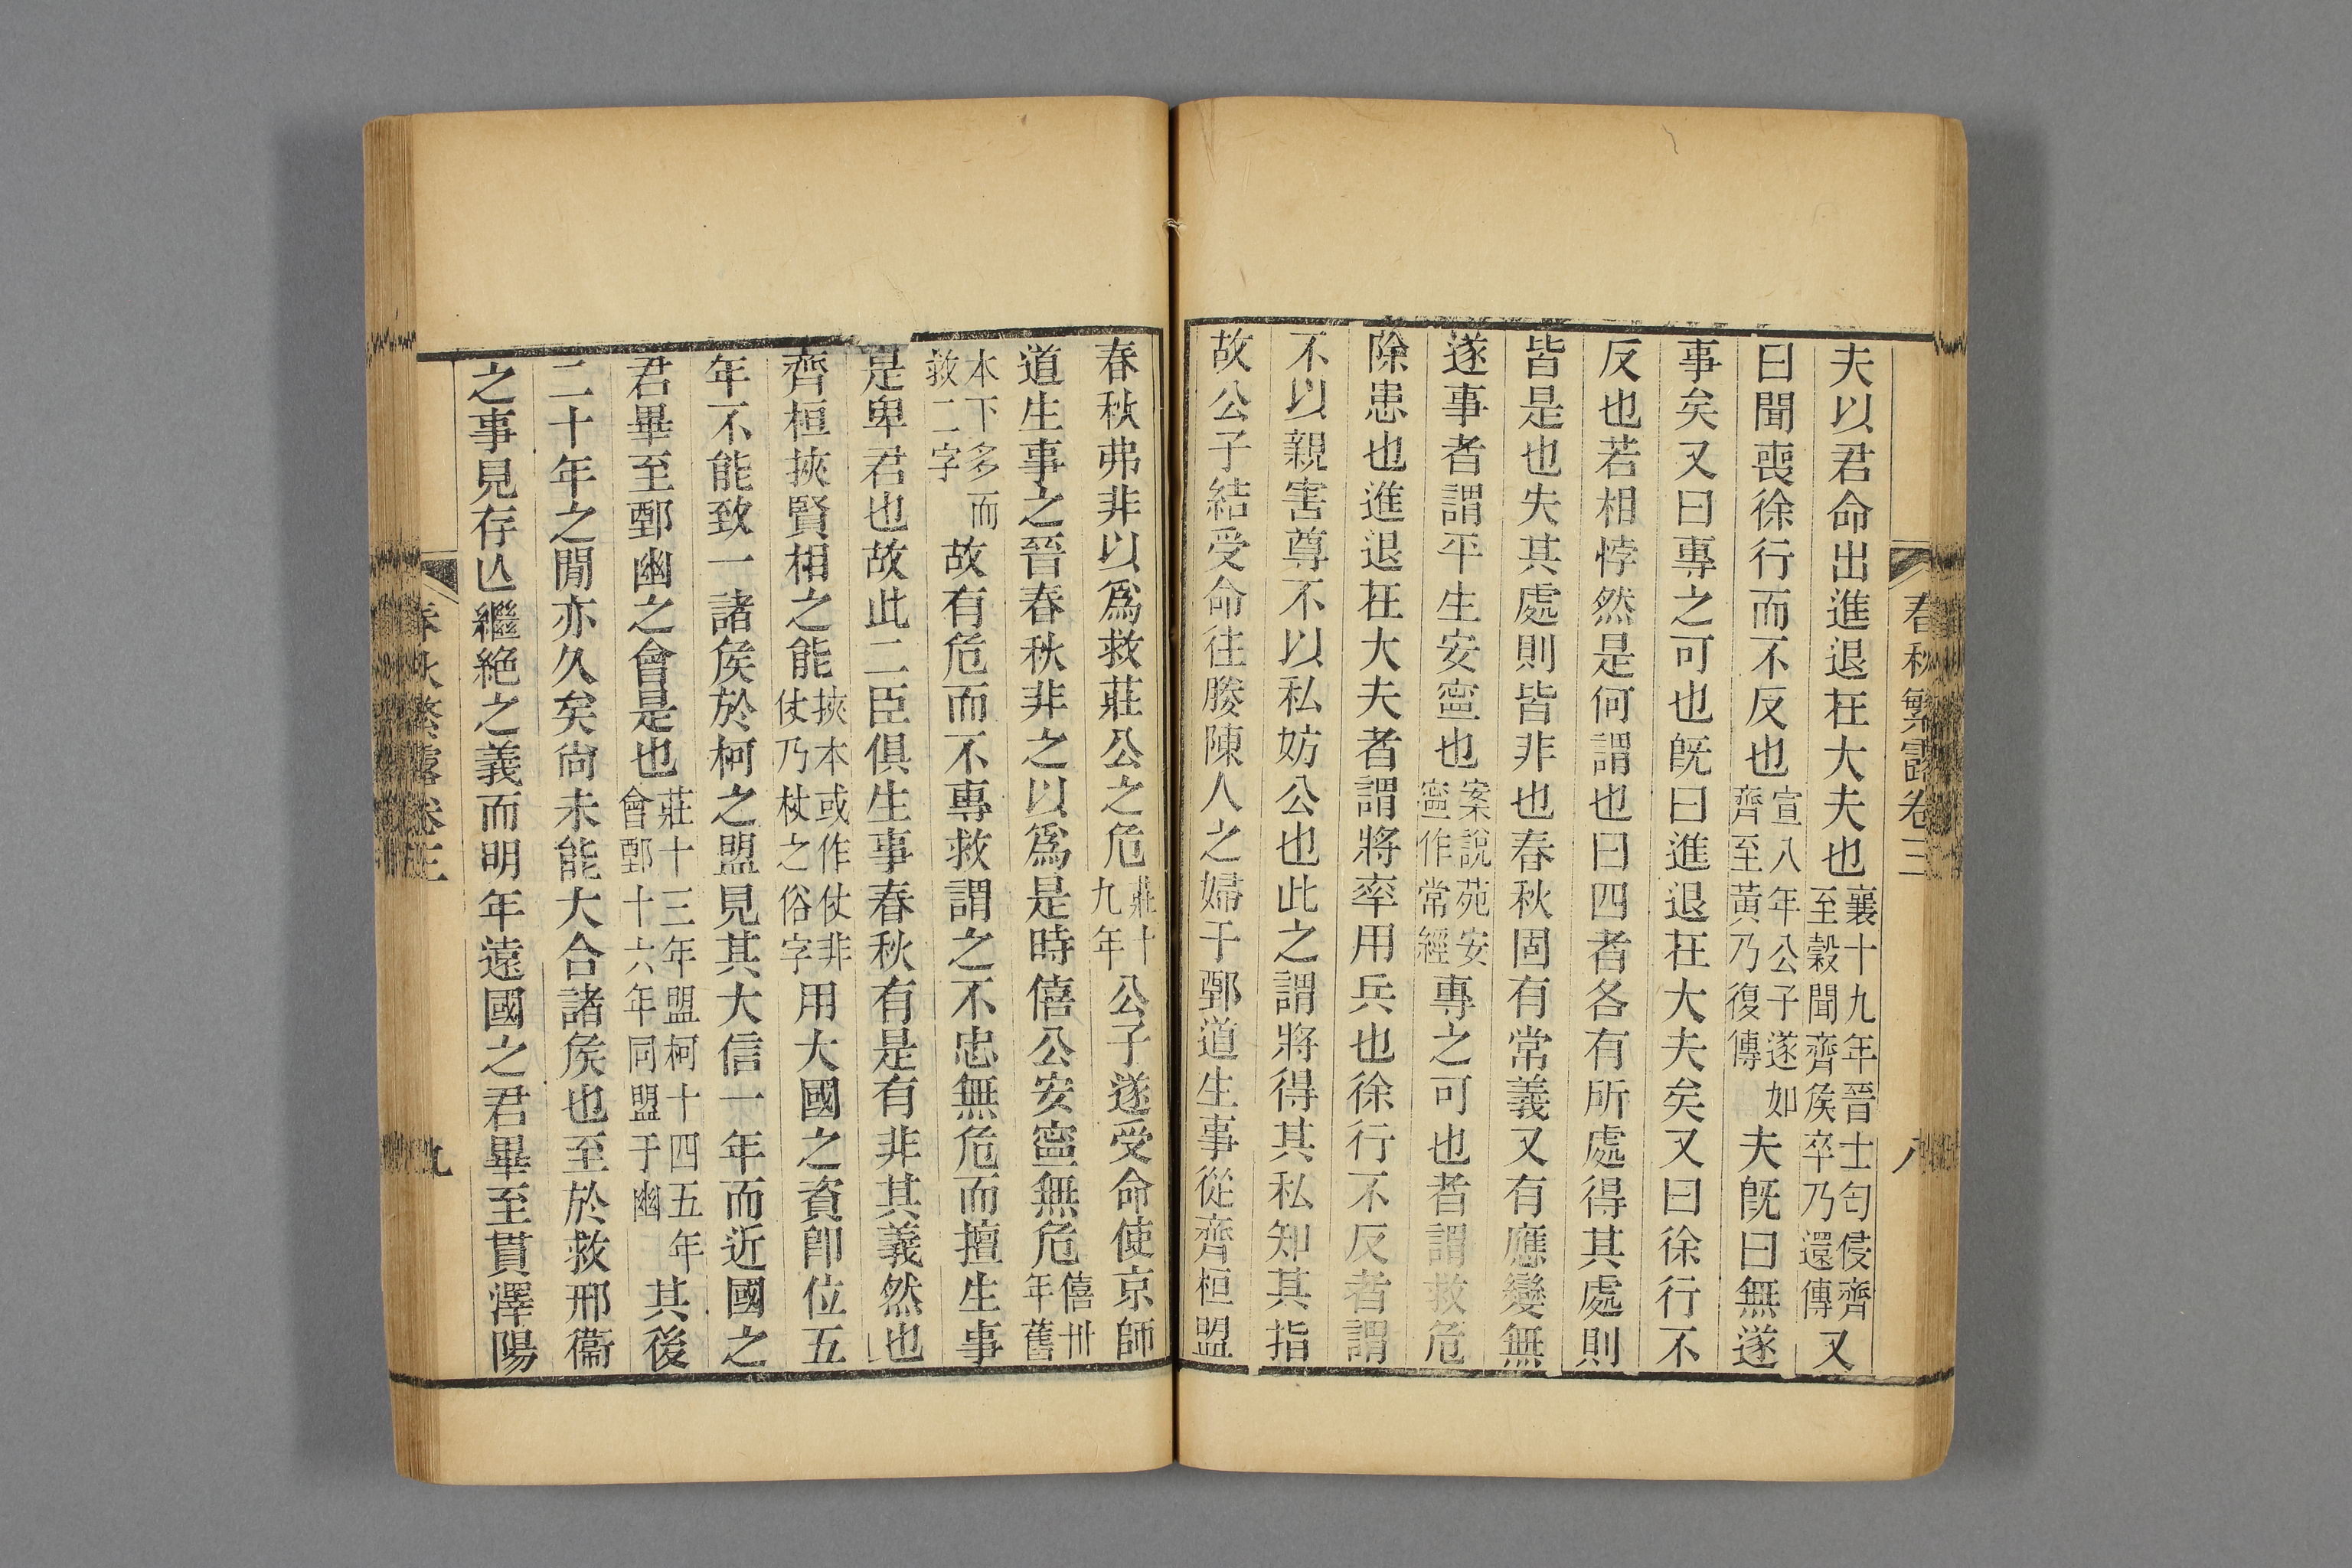 春秋繁露卷三
八
夫以君命出進退在大夫也襄十九年晉士匄侵齊至穀聞齊矦卒乃還傳又
曰聞喪徐行而不反也宣八年公子遂如齊至黃乃復傳夫旣曰無遂
事矣又曰專之可也旣曰進退在大夫矣又曰徐行不
反也若相悖然是何謂也曰四者各有所處得其處則
皆是也失其處則皆非也春秋固有常義又有應變無
遂事者謂平生安寍也案說苑安寍作常經專之可也者謂救危
除患也進退在大夫者謂將率用兵也徐行不反者謂
不以親害尊不以私妨公也此之謂將得其私知其指
故公子結受命往媵陳人之婦于鄄道生事從齊桓盟
春秋弗非以爲救莊公之危莊十九年公子遂受命使京師
道生事之晉春秋非之以爲是時僖公安寍無危僖卅年舊
本下多而救二字故有危而不專救謂之不忠無危而擅生事
是卑君也故此二臣俱生事春秋有是有非其義然也
齊桓挾賢相之能挾本或作仗非仗乃杖之俗字用大國之資卽位五
年不能致一諸矦於柯之盟見其大信一年而近國之
君畢至鄄幽之會是也莊十三年盟柯十四五年會鄄十六年同盟于幽其後
二十年之閒亦久矣尙未能大合諸矦也至於救邢衞
之事見存亾繼絕之義而明年遠國之君畢至貫澤陽
春秋繁露卷三
九